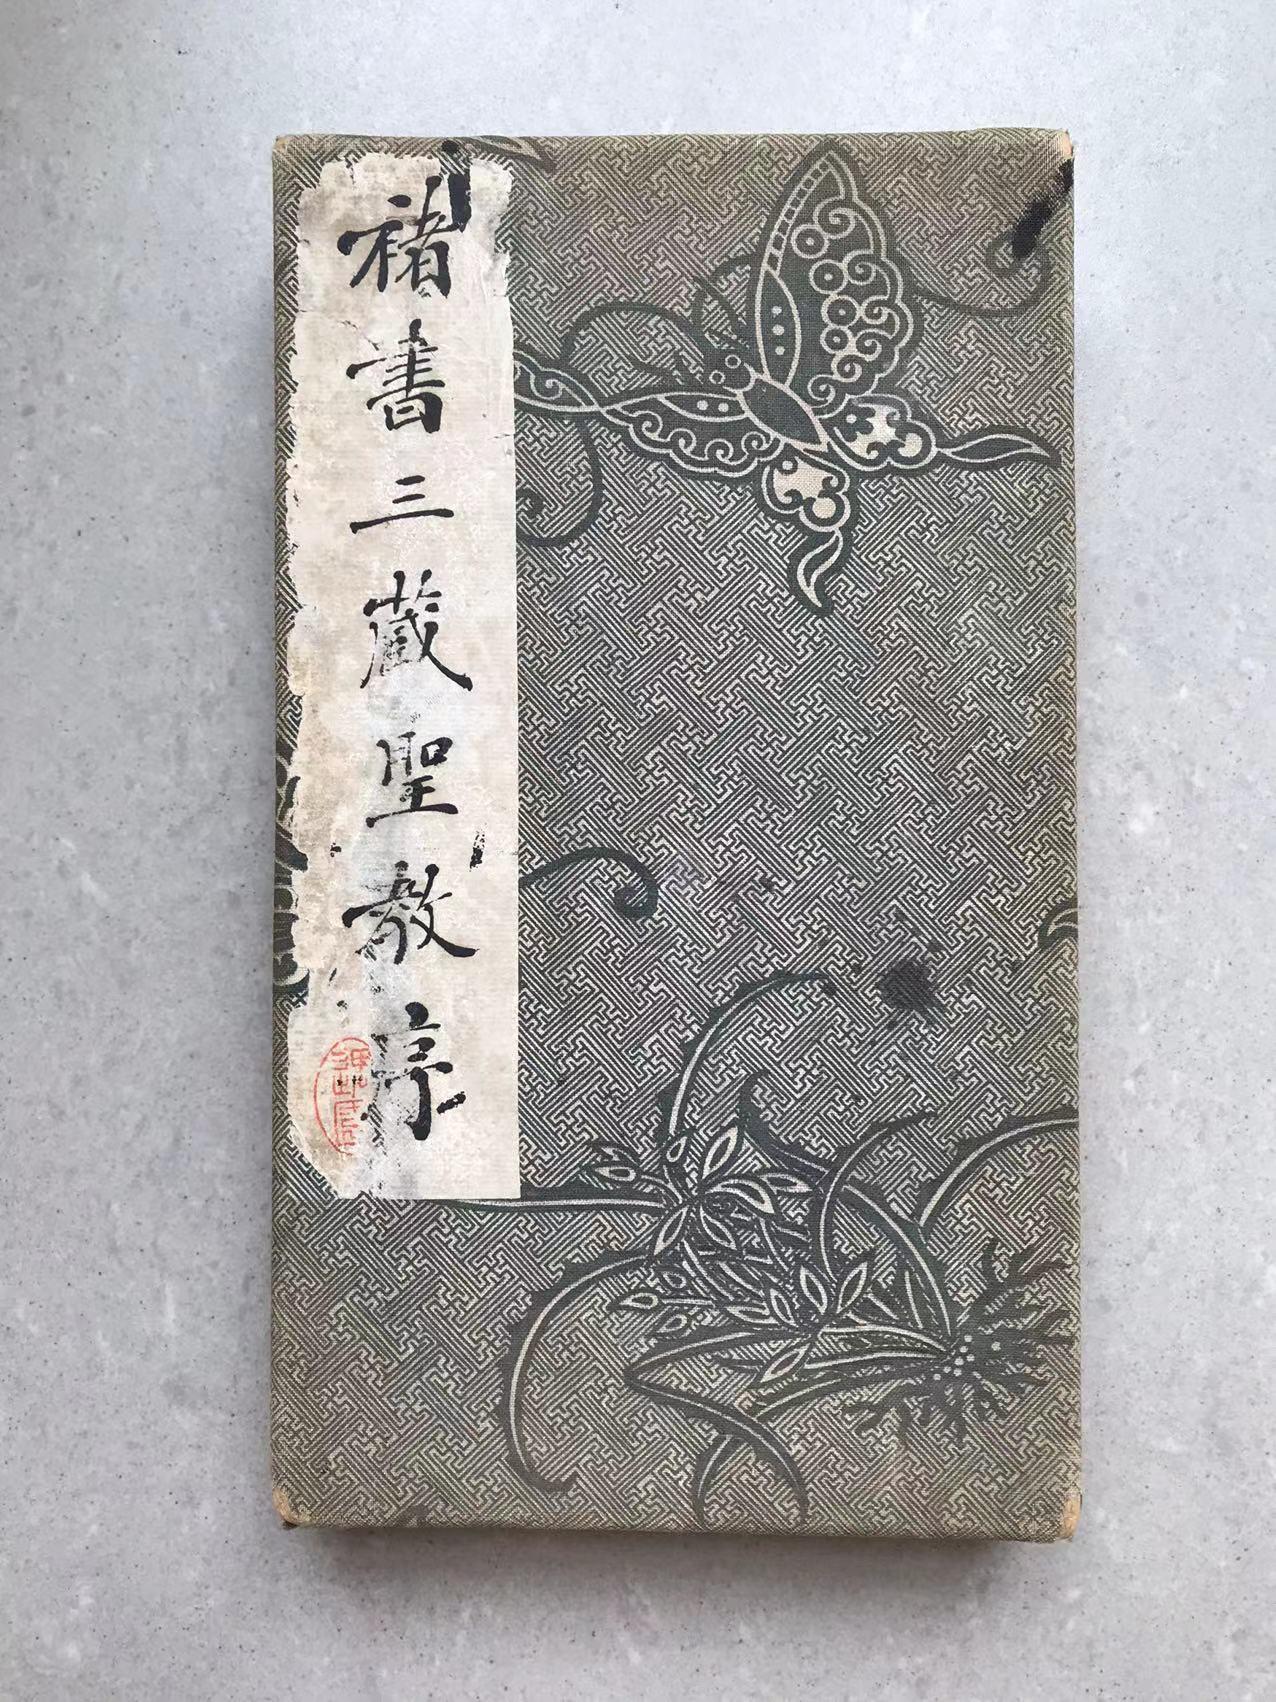 褚書三藏聖教序